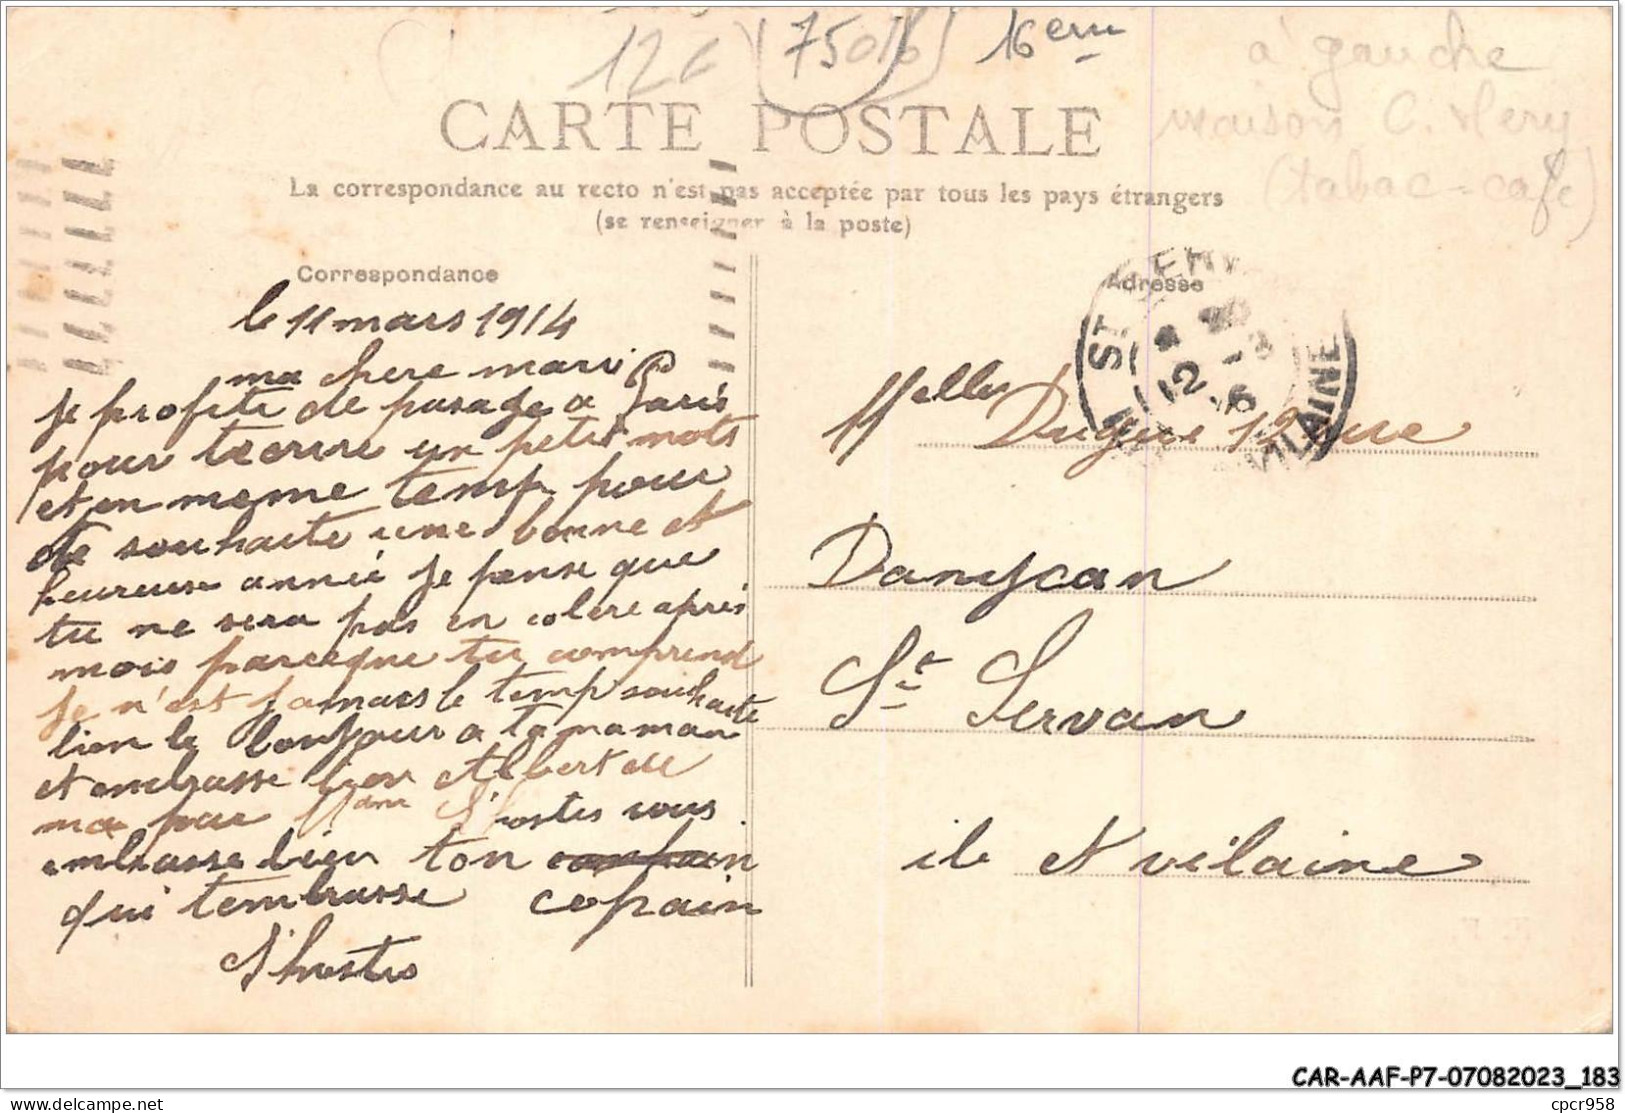 12c (75016) 16eme
à gauche
maison C. Mery
(tabac-café)
CARTE POSTALE
La correspondance au recto n'est pas acceptée par tous les pays étrangers
(se renseigner à la poste)
Correspondance
Adresse
le 11 mars 1914
ma chere mari
je profite de pasage a Paris
pour tecrire un petit mots
et en meme temp pour
te souhaite une bonne et
heureuse année je pense que
tu ne sera pas en colere apres
mois parceque tu comprend
je n'est jamais le temp souhaite
bien le bonjour a ta maman
et embrasse bien Albert de
ma par Mdme L'hostis vous
embrasse bien ton
qui tembrasse copain
L'hostis
Melles Dugue 12 rue
Danycan
St Servan
ile et vilaine
ST SERVAN
12 - 3
VILAINE
CAR-AAF-P7-07082023_183
delcampe.net
cpcr958